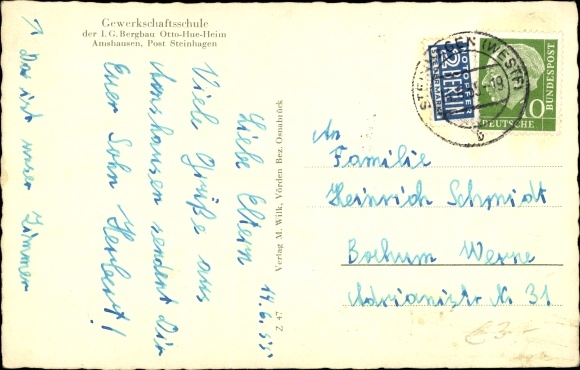 Gewerkschaftsschule
der I. G. Bergbau Otto-Hue-Heim
Amshausen, Post Steinhagen
14.6.55
Liebe Eltern
Viele Grüße aus
Amshausen sendet Dir
Euer Sohn Herbert!
↑ Das ist unser Zimmer
Verlag M. Wilk, Vörden Bez. Osnabrück
Z 47
NOTOPFER
2 BERLIN
STEUERMARKE
(WESTF)
b
DEUTSCHE
BUNDESPOST
10
An
Familie
Heinrich Schmidt
Bochum Werne
Adrianistr Nr. 31
€ 3.-